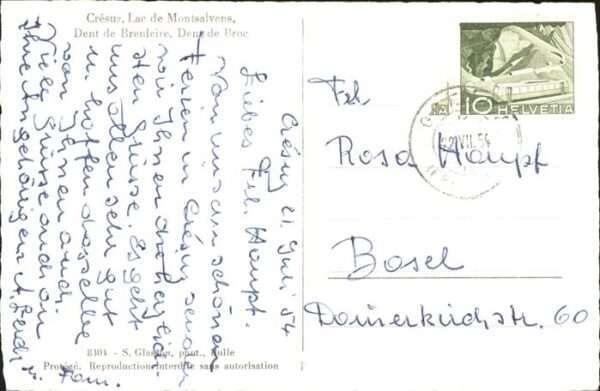 Crésuz, Lac de Montsalvens,
Dent de Brenleire, Dent de Broc
10 HELVETIA
Crésuz 21. Juli 54
Liebes Frl. Haupt.
Von unsern schönen
Ferien in Crésuz senden
wir Ihnen die herzlich-
sten Grüsse. Es geht
uns allen sehr gut
u. hoffen dasselbe
von Ihnen auch.
Viele Grüsse auch an
Ihre Angehörigen
Fam.
Frl.
Rosa Haupt
Basel
60
8304 - S. Glasson, phot., Bulle
Protégé. Reproduction interdite sans autorisation